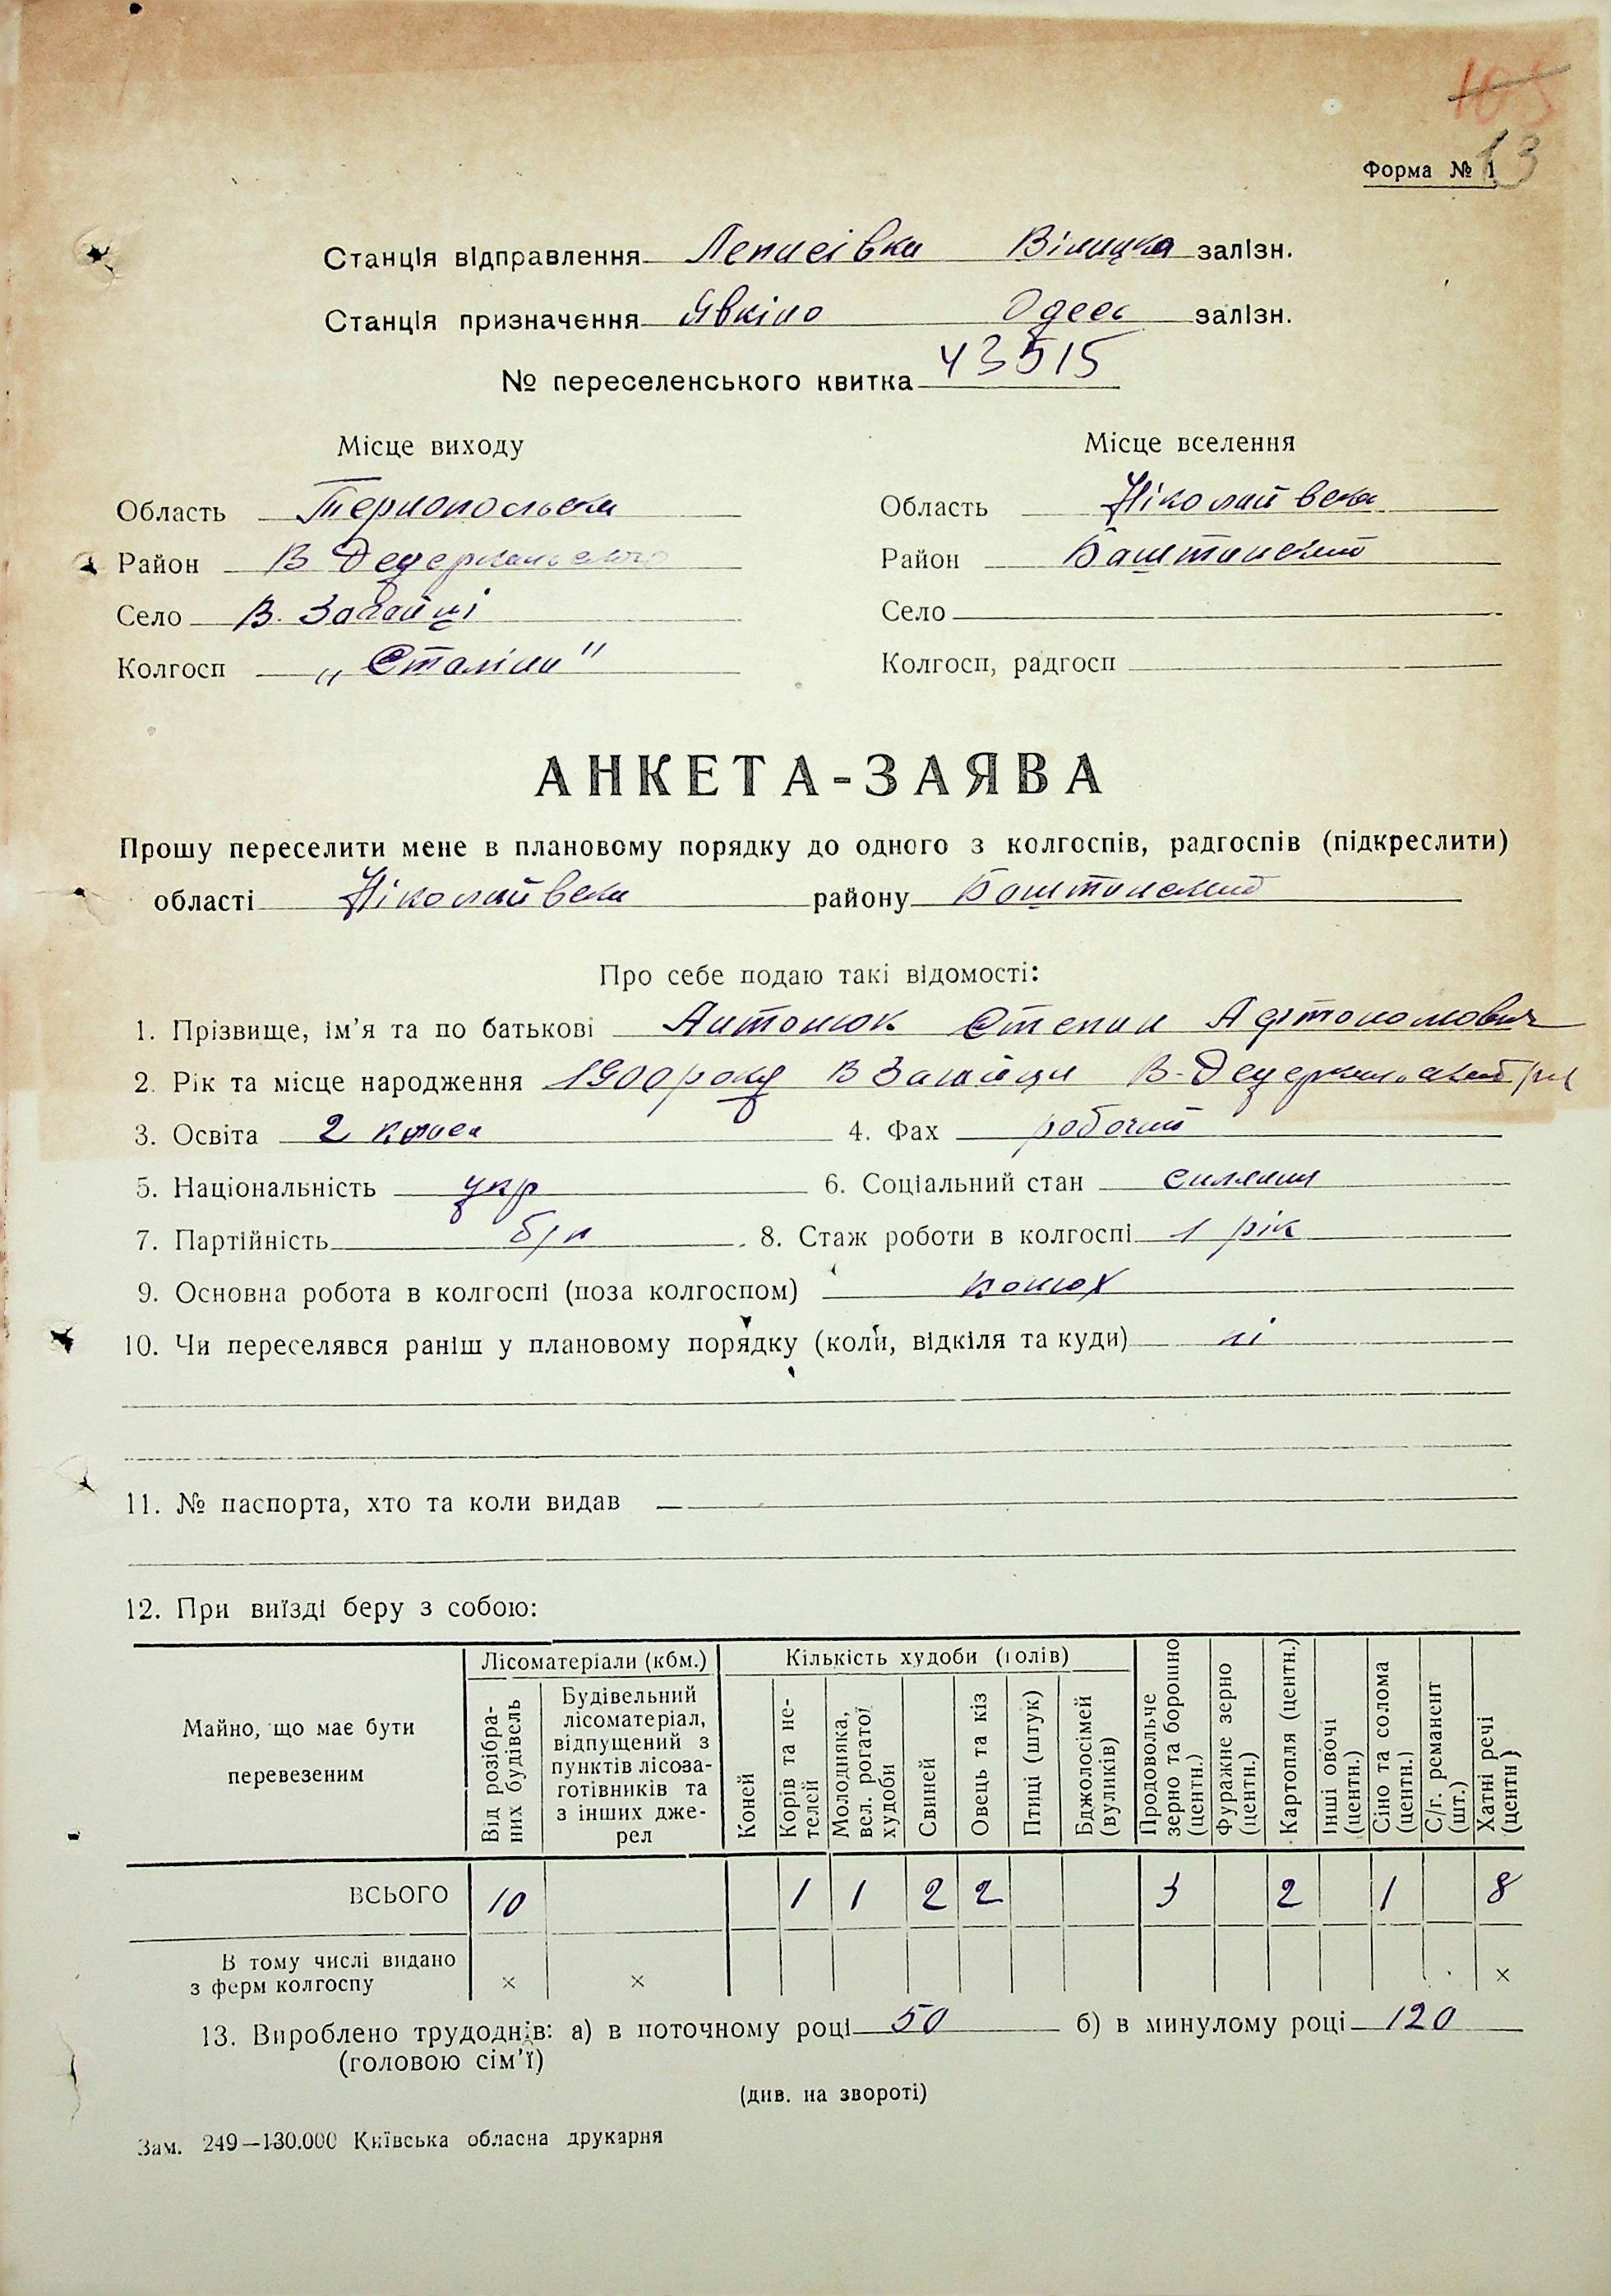 105
13
Форма № 1
Станція відправлення Леписівка Вінницка залізн.
Станція призначення Явкіно Одесс залізн.
№ переселенського квитка 43515
Місце виходу Місце вселення
Область Тернопольска Область Ніколайвска
Район В Дедеркальского Район Баштанский
Село В. Загайці Село
Колгосп „Сталіна" Колгосп, радгосп
АНКЕТА-ЗАЯВА
Прошу переселити мене в плановому порядку до одного з колгоспів, радгоспів (підкреслити)
області Ніколайвска району Баштанский
Про себе подаю такі відомості:
1. Прізвище, ім'я та по батькові Антонюк Степан Афтономович
2. Рік та місце народження 1900 року В Загайци В-Дедеркальский
3. Освіта 2 класа 4. Фах робочий
5. Національність укр 6. Соціальний стан силянин
7. Партійність б/п 8. Стаж роботи в колгоспі 1 рік
9. Основна робота в колгоспі (поза колгоспом) конюх
10. Чи переселявся раніш у плановому порядку (коли, відкіля та куди) ні
11. № паспорта, хто та коли видав
12. При виїзді беру з собою:
Майно, що має бути перевезеним
Лісоматеріали (кбм.)
Від розібра-
них будівель
Будівельний
лісоматеріал,
відпущений з
пунктів лісоза-
готівників та
з інших дже-
рел
Кількість худоби (голів)
Коней
Корів та не-
телей
Молодняка,
вел. рогатої
худоби
Свиней
Овець та кіз
Птиці (штук)
Бджолосімей
(вуликів)
Продовольче
зерно та борошно
(центн.)
Фуражне зерно
(центн.)
Картопля (центн.)
Інші овочі
(центн.)
Сіно та солома
(центн.)
С/г. реманент
(шт.)
Хатні речі
(центн)
ВСЬОГО 10 1 1 2 2 3 2 1 8
В тому числі видано
з ферм колгоспу × × ×
13. Вироблено трудоднів: а) в поточному році 50 б) в минулому році 120
(головою сім'ї)
(див. на звороті)
Зам. 249—130.000 Київська обласна друкарня